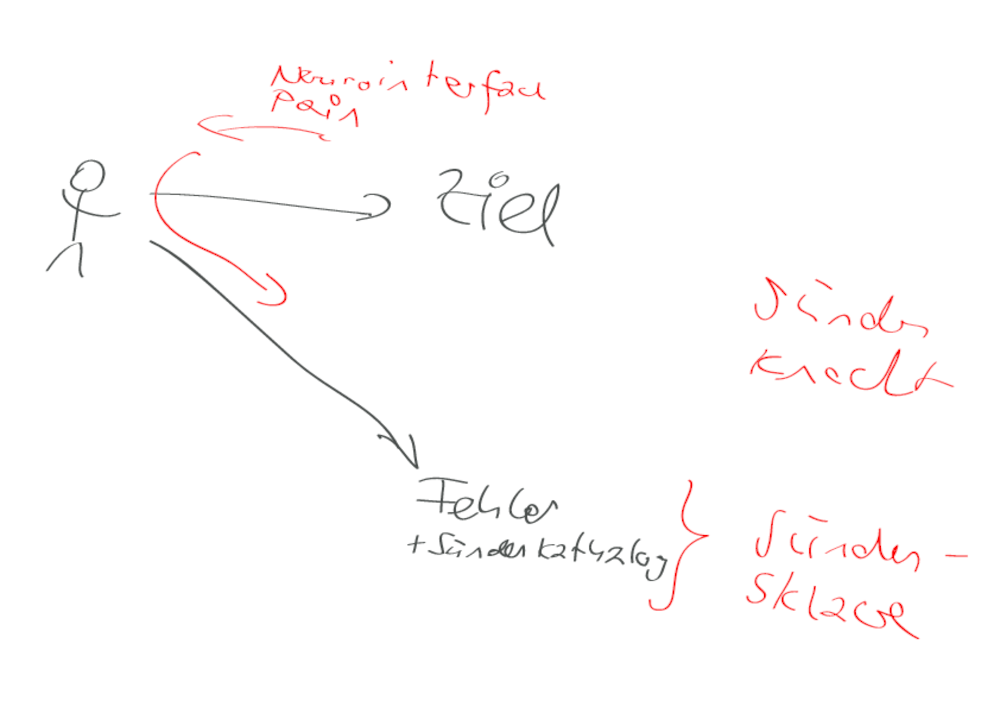 Neurointerface
Pain
Ziel
Sünden
Knecht
Fehler
+ Sündenkatalog
Sünden-
Sklave